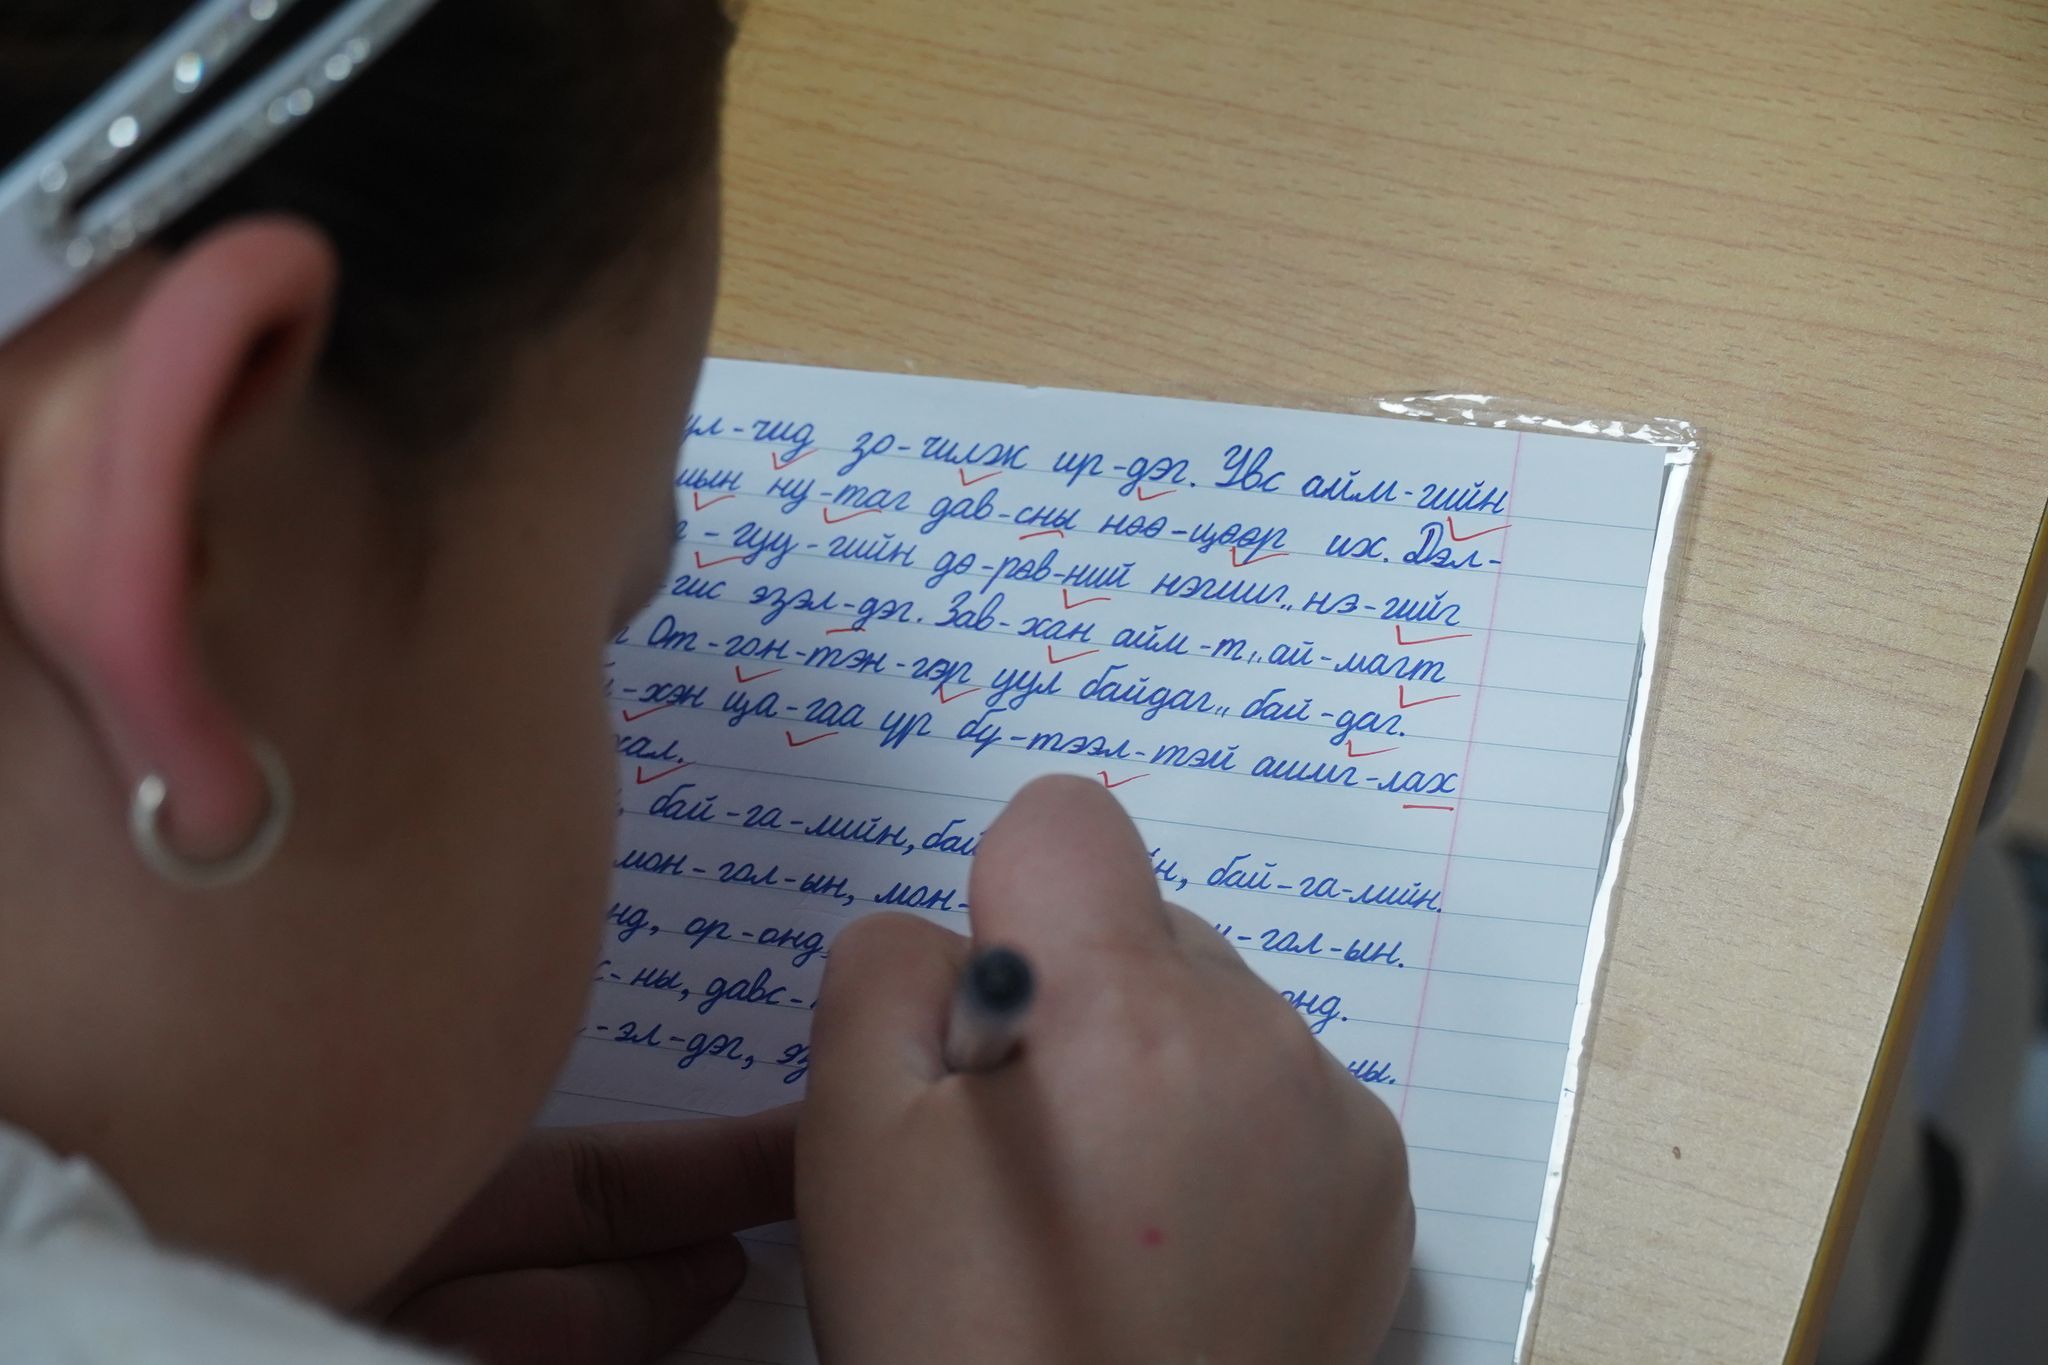 ул-чид зо-чилэж ир-дэг. Увс айм-гийн
ну-таг дав-сны нөө-цөөр их. Дэл-
-гуу-гийн дө-рөв-ний нэгшиг,, нэ-гийг
-гис эзэл-дэг. Зав-хан айм-т,, ай-магт
От-гон-тэн-гэр уул байдаг,, бай-даг.
-хэн ца-гаа үр бү-тээл-тэй ашиг-лах
хал.
бай-га-лийн, бай бай-га-лийн.
мон-гол-ын, мон- -гол-ын.
нд, ор-онд, онд.
с-ны, давс- ны.
-эл-дэг, эз